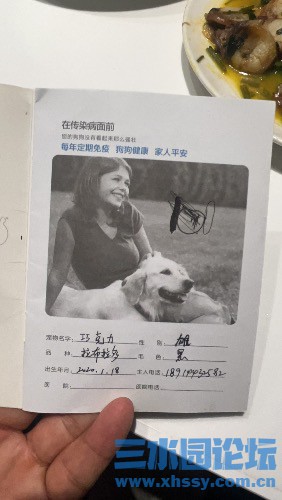 在传染病面前
您的狗狗没有看起来那么强壮
每年定期免疫 狗狗健康 家人平安
宠物名字：巧克力 性别：雄
品种：拉布拉多 毛色：黑
出生年月：2020.1.18 主人电话：
医院： 医院电话：
三水园论坛
www.xhssy.com